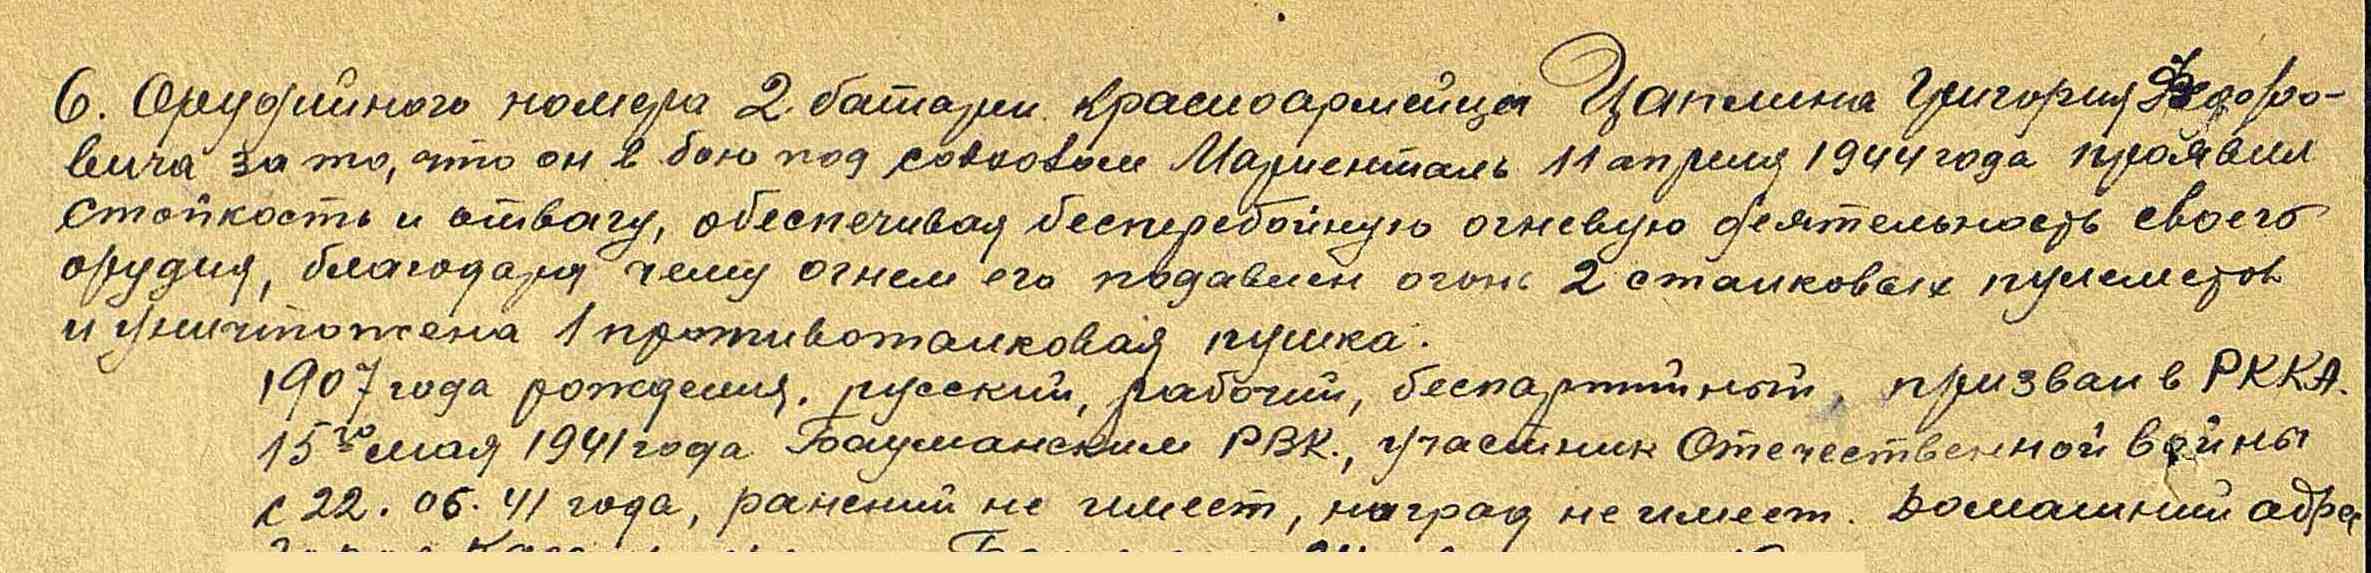 6. Орудийного номера 2 батареи красноармейца Цаплина Григория Федоро-
вича за то, что он в бою под совхозом Мариенталь 11 апреля 1944 года проявил
стойкость и отвагу, обеспечивая бесперебойную огневую деятельность своего
орудия, благодаря чему огнем его подавлен огонь 2 станковых пулеметов
и уничтожена 1 противотанковая пушка.
1907 года рождения, русский, рабочий, беспартийный, призван в РККА.
15го мая 1941 года Бауманским РВК., участник Отечественной войны
с 22.06.41 года, ранений не имеет, наград не имеет. Домашний адрес